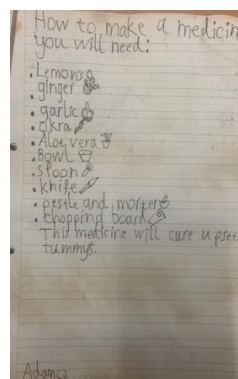 How to make a medicin
you will need:
• Lemons
ginger
• garlic
• okra
• Aloe vera
• Bowl
• spoon
• knife
• pestle and morter
• chopping board
This medicine will cure upse
tummys.